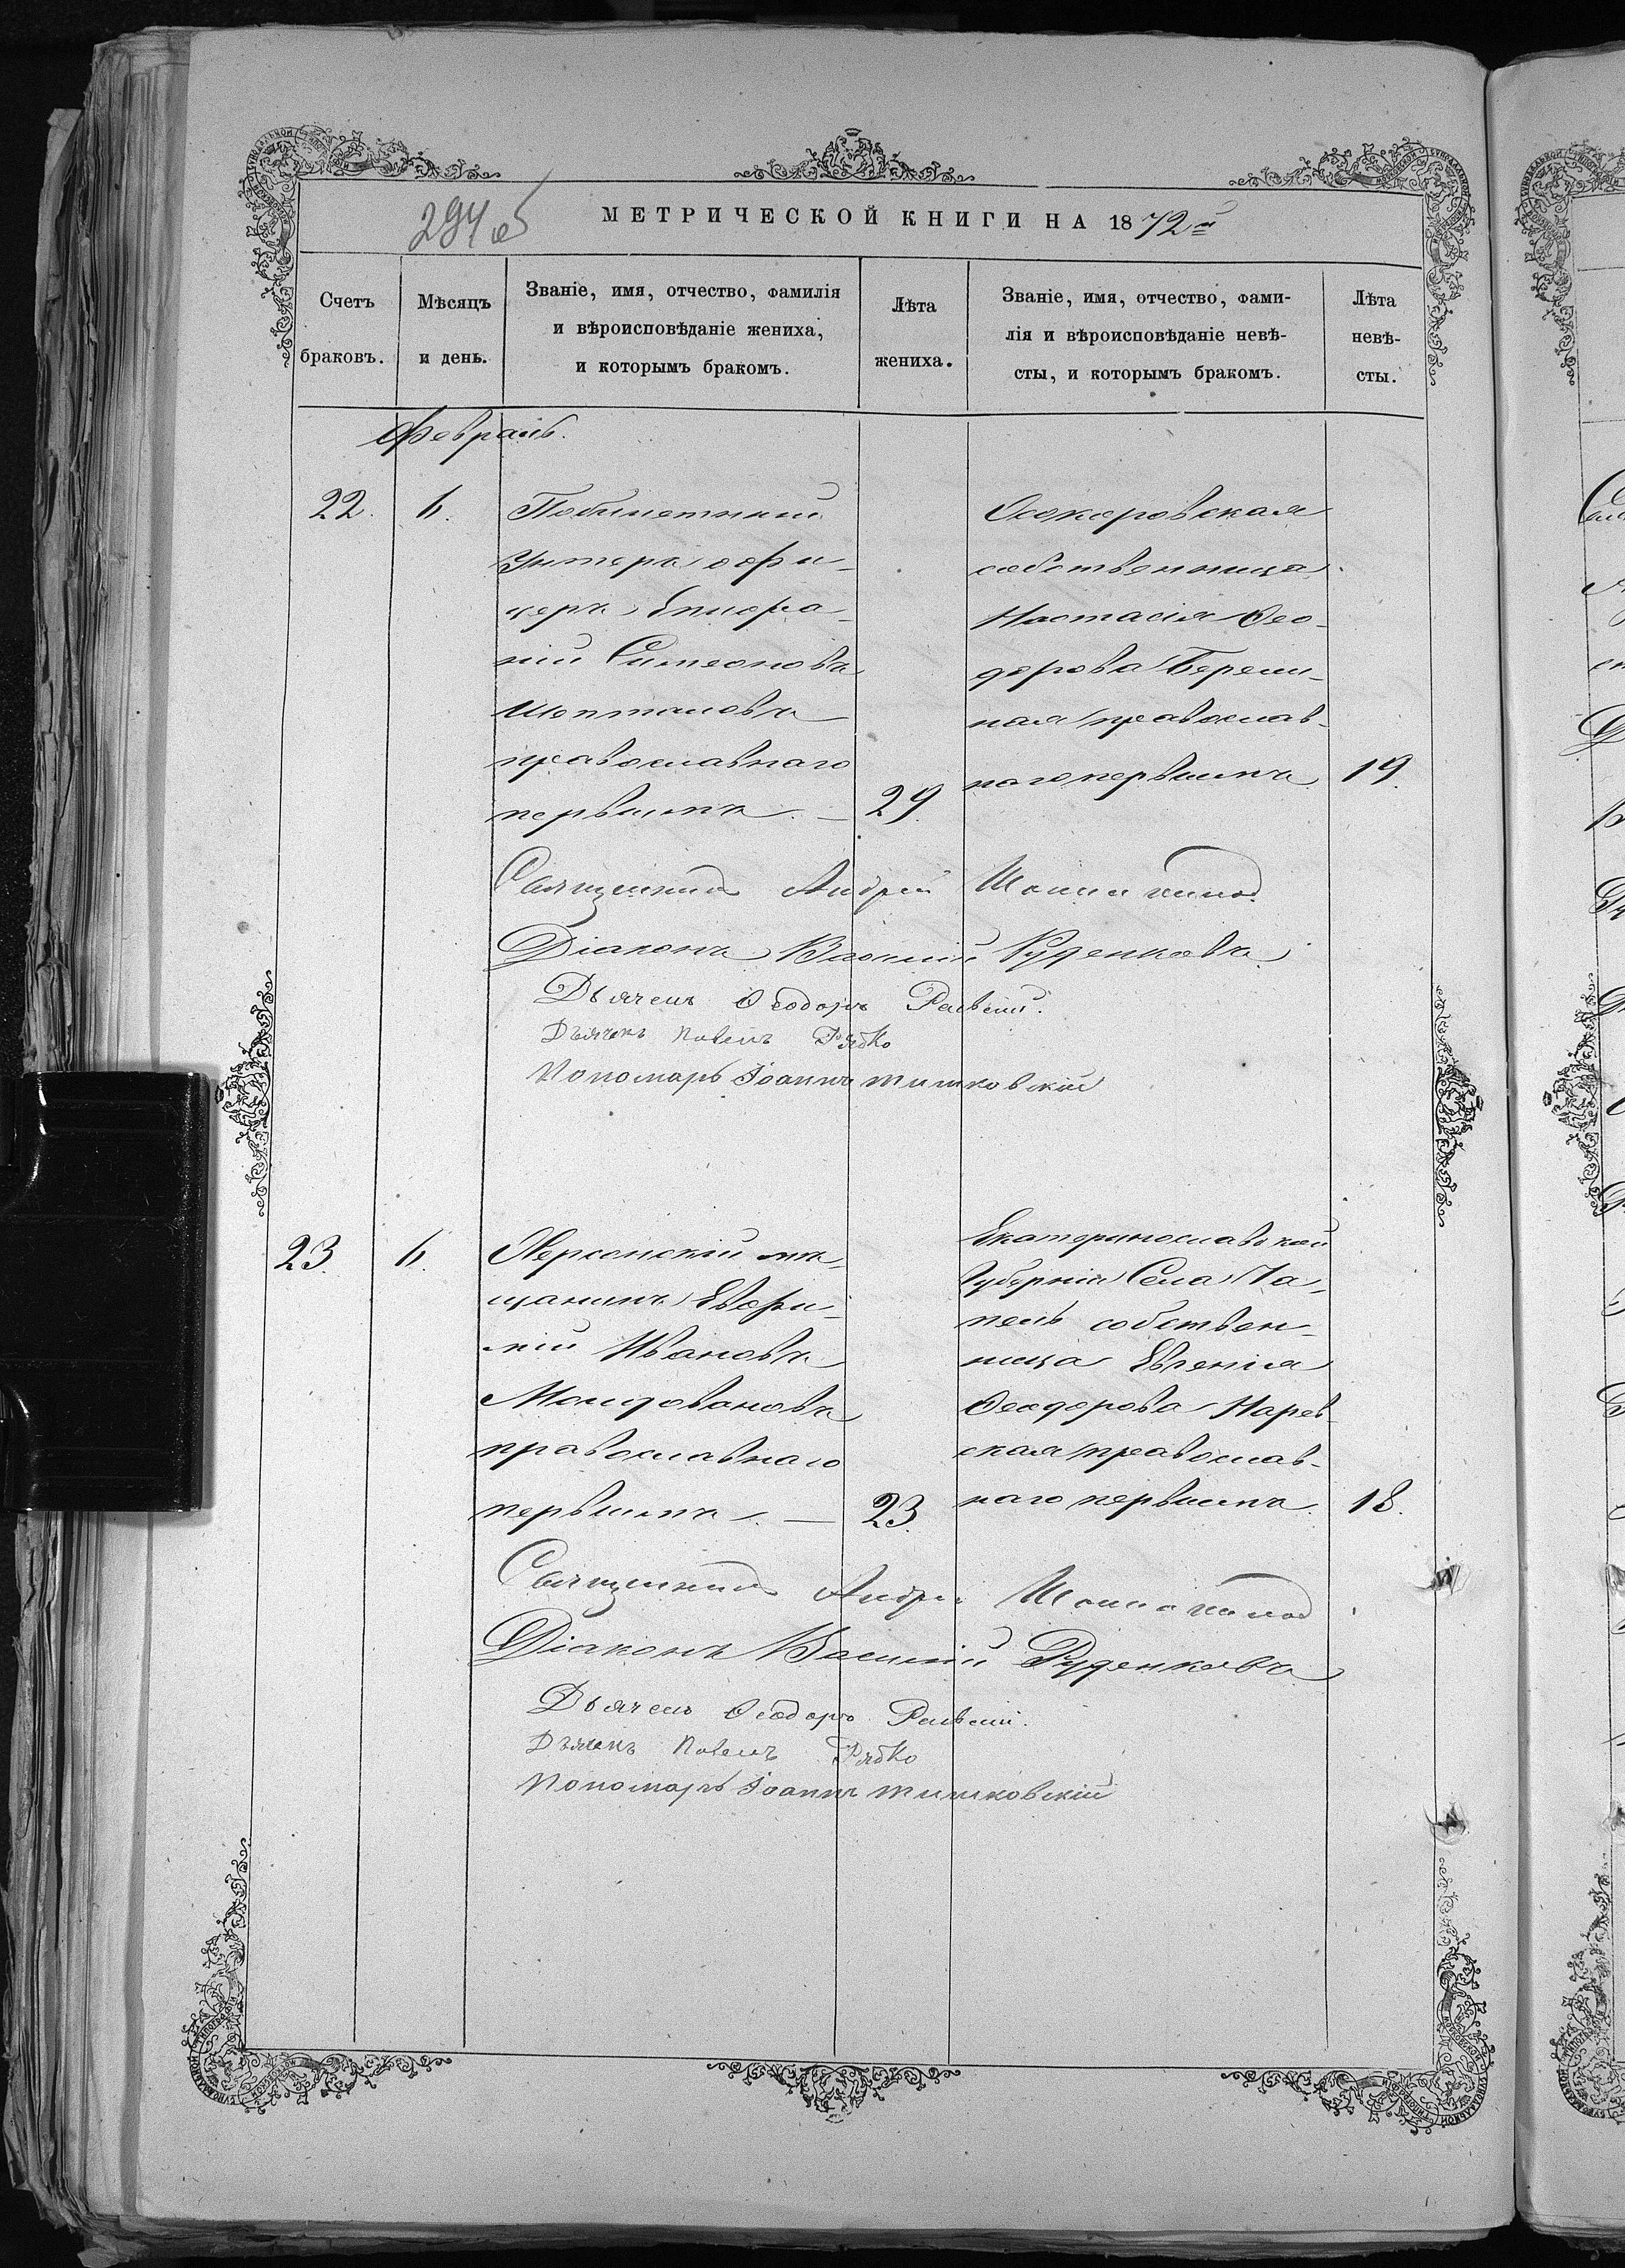 294 об
МЕТРИЧЕСКОЙ КНИГИ НА 1872 й
Счетъ браковъ.
Мѣсяцъ и день.
Званіе, имя, отчество, фамилія
и вѣроисповѣданіе жениха,
и которымъ бракомъ.
Лѣта жениха.
Званіе, имя, отчество, фами-
лія и вѣроисповѣданіе невѣ-
сты, и которымъ бракомъ.
Лѣта невѣ-
сты.
Февраль.
22. 6.
Унтеръ офи-
церъ Епифа-
ній Симеоновъ
Шепталовъ
православнаго
первымъ. — 29.
собственница
Настасія Ѳео-
дорова
ная православ-
наго первымъ 19.
Священникъ Андрей
Діаконъ Василій Руденковъ
Дьячекъ Ѳеодоръ
Дьячекъ Павелъ Рябко
Пономарь Іоаннъ Тишковскій
23. 6.
Херсонскій мѣ-
щанинъ Евфи-
мій Ивановъ
Молдовановъ
православнаго
первымъ. — 23.
Екатеринославской
Губерніи Села Ча-
пель собствен-
ница Евгенія
Ѳеодорова Царев-
ская православ-
наго первымъ. 18.
Священникъ Андрей
Діаконъ Василій Руденковъ
Дьячекъ Ѳеодоръ
Дьячекъ Павелъ Рябко
Пономарь Іоаннъ Тишковскій